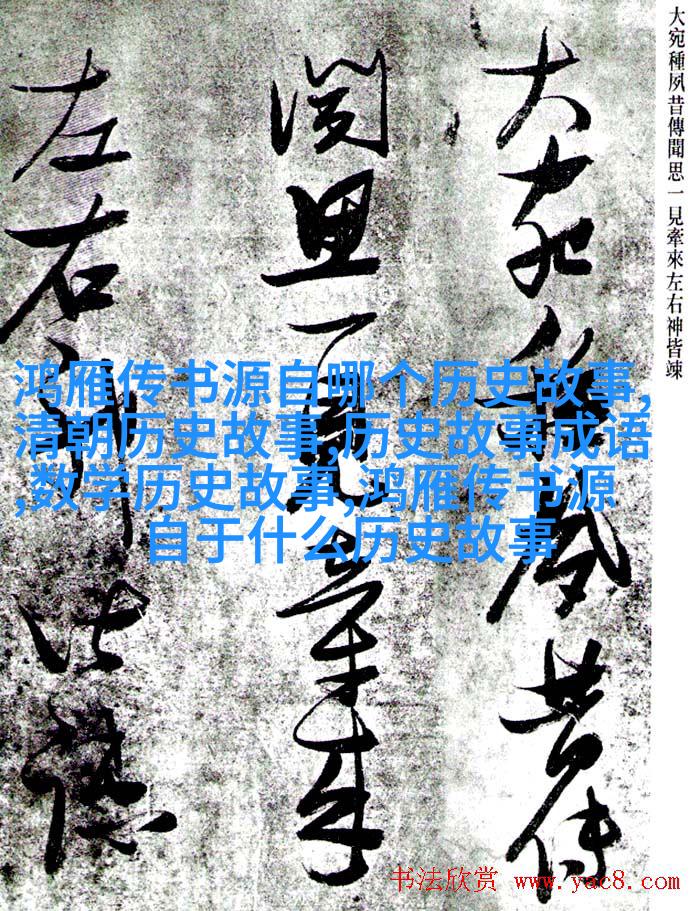 大宛種夙昔傳聞思一見牽來左右神皆竦
大宛種夙昔傳
聞思一見牽來
左右神皆竦
鸿雁传书源自哪个历史故事,
清朝历史故事,历史故事成语
,数学历史故事,鸿雁传书源
自于什么历史故事
书法欣赏 www.yac8.com